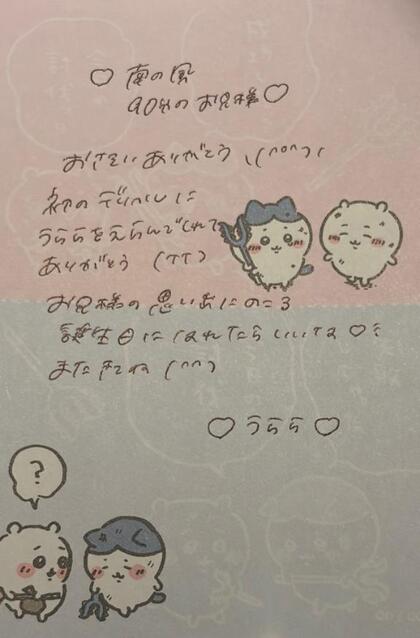 ♡ 南の風
90分のお兄様♡
おさそいありがとう \(^o^)/
初のデリヘルに
うららをえらんでくれて
ありがとう (TT)
お兄様の思い出にのこる
誕生日になれたらいいな♡
またきてね (^^)
♡ うらら ♡
?